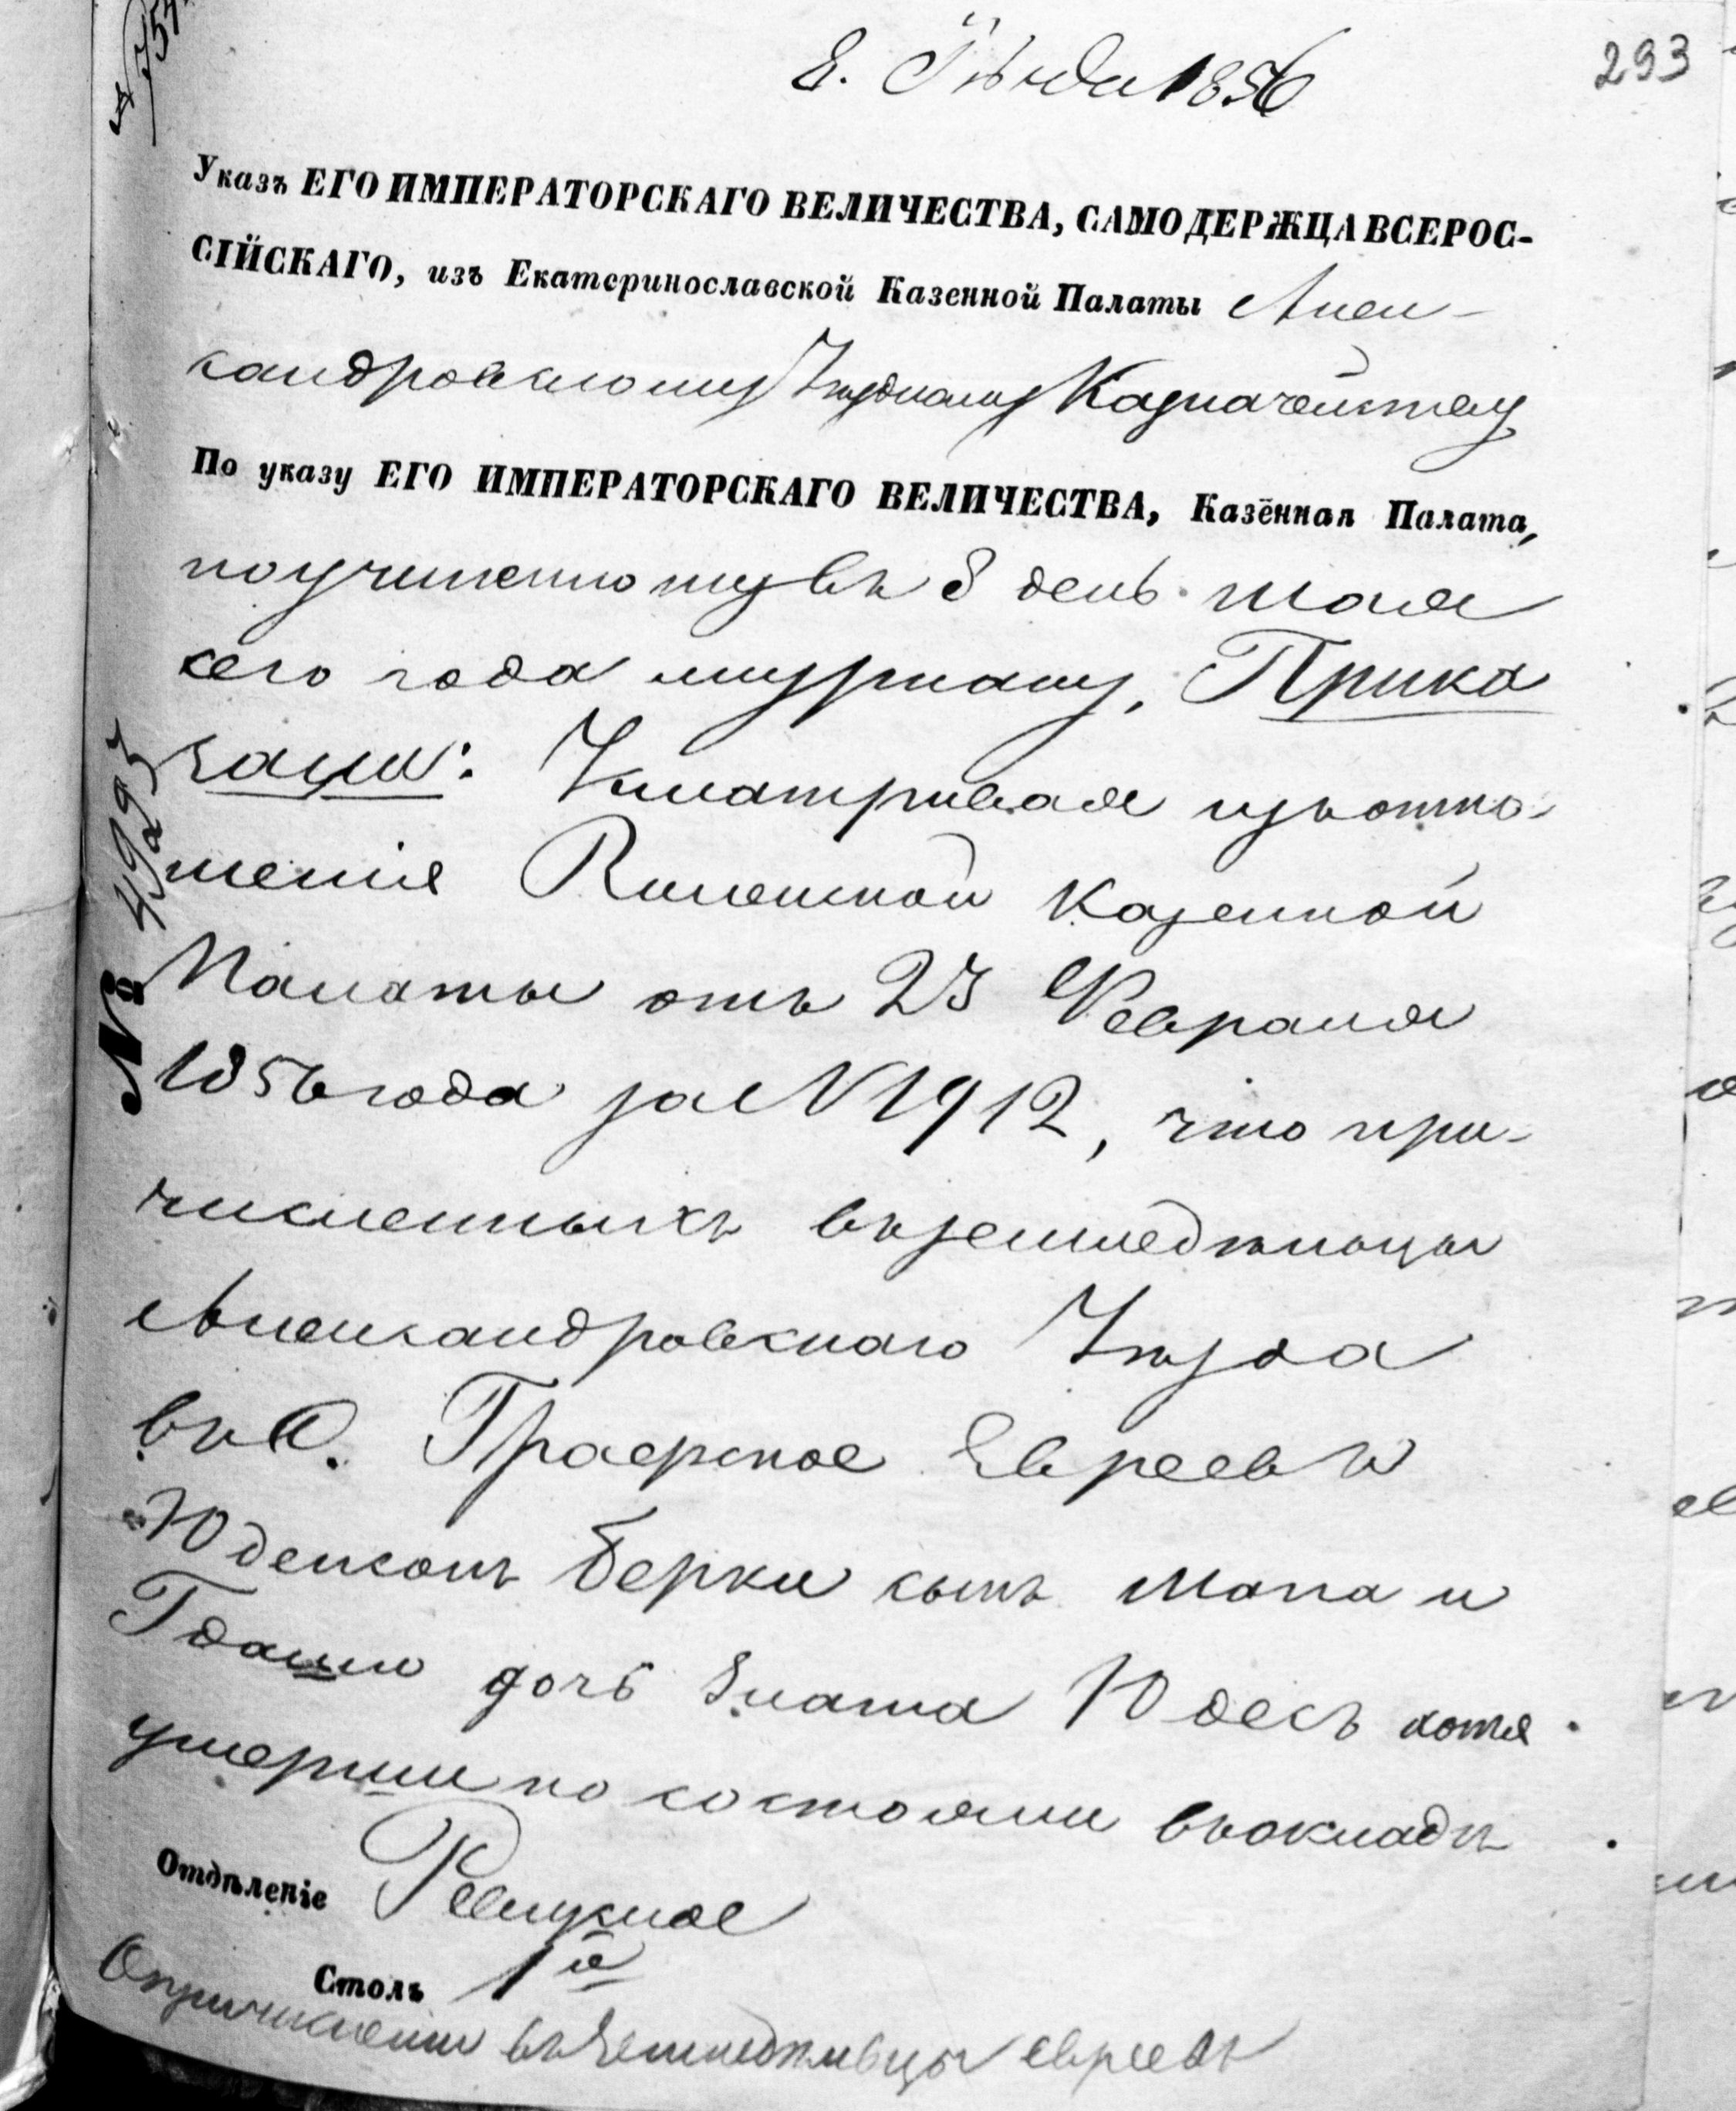 293
1856
Указъ ЕГО ИМПЕРАТОРСКАГО ВЕЛИЧЕСТВА, САМОДЕРЖЦА ВСЕРОС-
СІЙСКАГО, изъ Екатеринославской Казенной Палаты Алек-
сандровскому Уѣздному Казначейству
По указу ЕГО ИМПЕРАТОРСКАГО ВЕЛИЧЕСТВА, Казённая Палата,
по учиненному въ 8 день мая
сего года журналу, Прика
зали: Усматривая изъ отно-
шенія Виленской Казенной
Палаты отъ 23 Февраля
1856 года за N 1912, что при-
численныхъ въ земледѣльцы
Александровскаго Уѣзда
въ К. Графское Евреевъ
Юделсонъ Берки сынъ Мана и
дочь Злата Юдесъ хотя
умерши но состояли въ окладѣ
Отдѣленіе Ревизское
Столъ 1й
О причисленіи въ земледѣльцы евреевъ
№ 4993